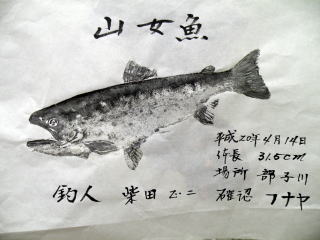 山女魚
平成20年4月14日
体長 31.5cm
場所 部子川
釣人 柴田 正二 確認 フナヤ